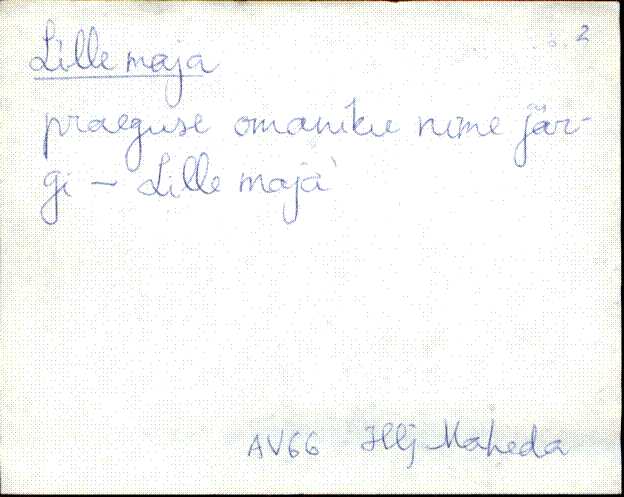 2
Lille maja
praeguse omaniku nime jär-
gi - Lille maja
AV66 Hlj Maheda